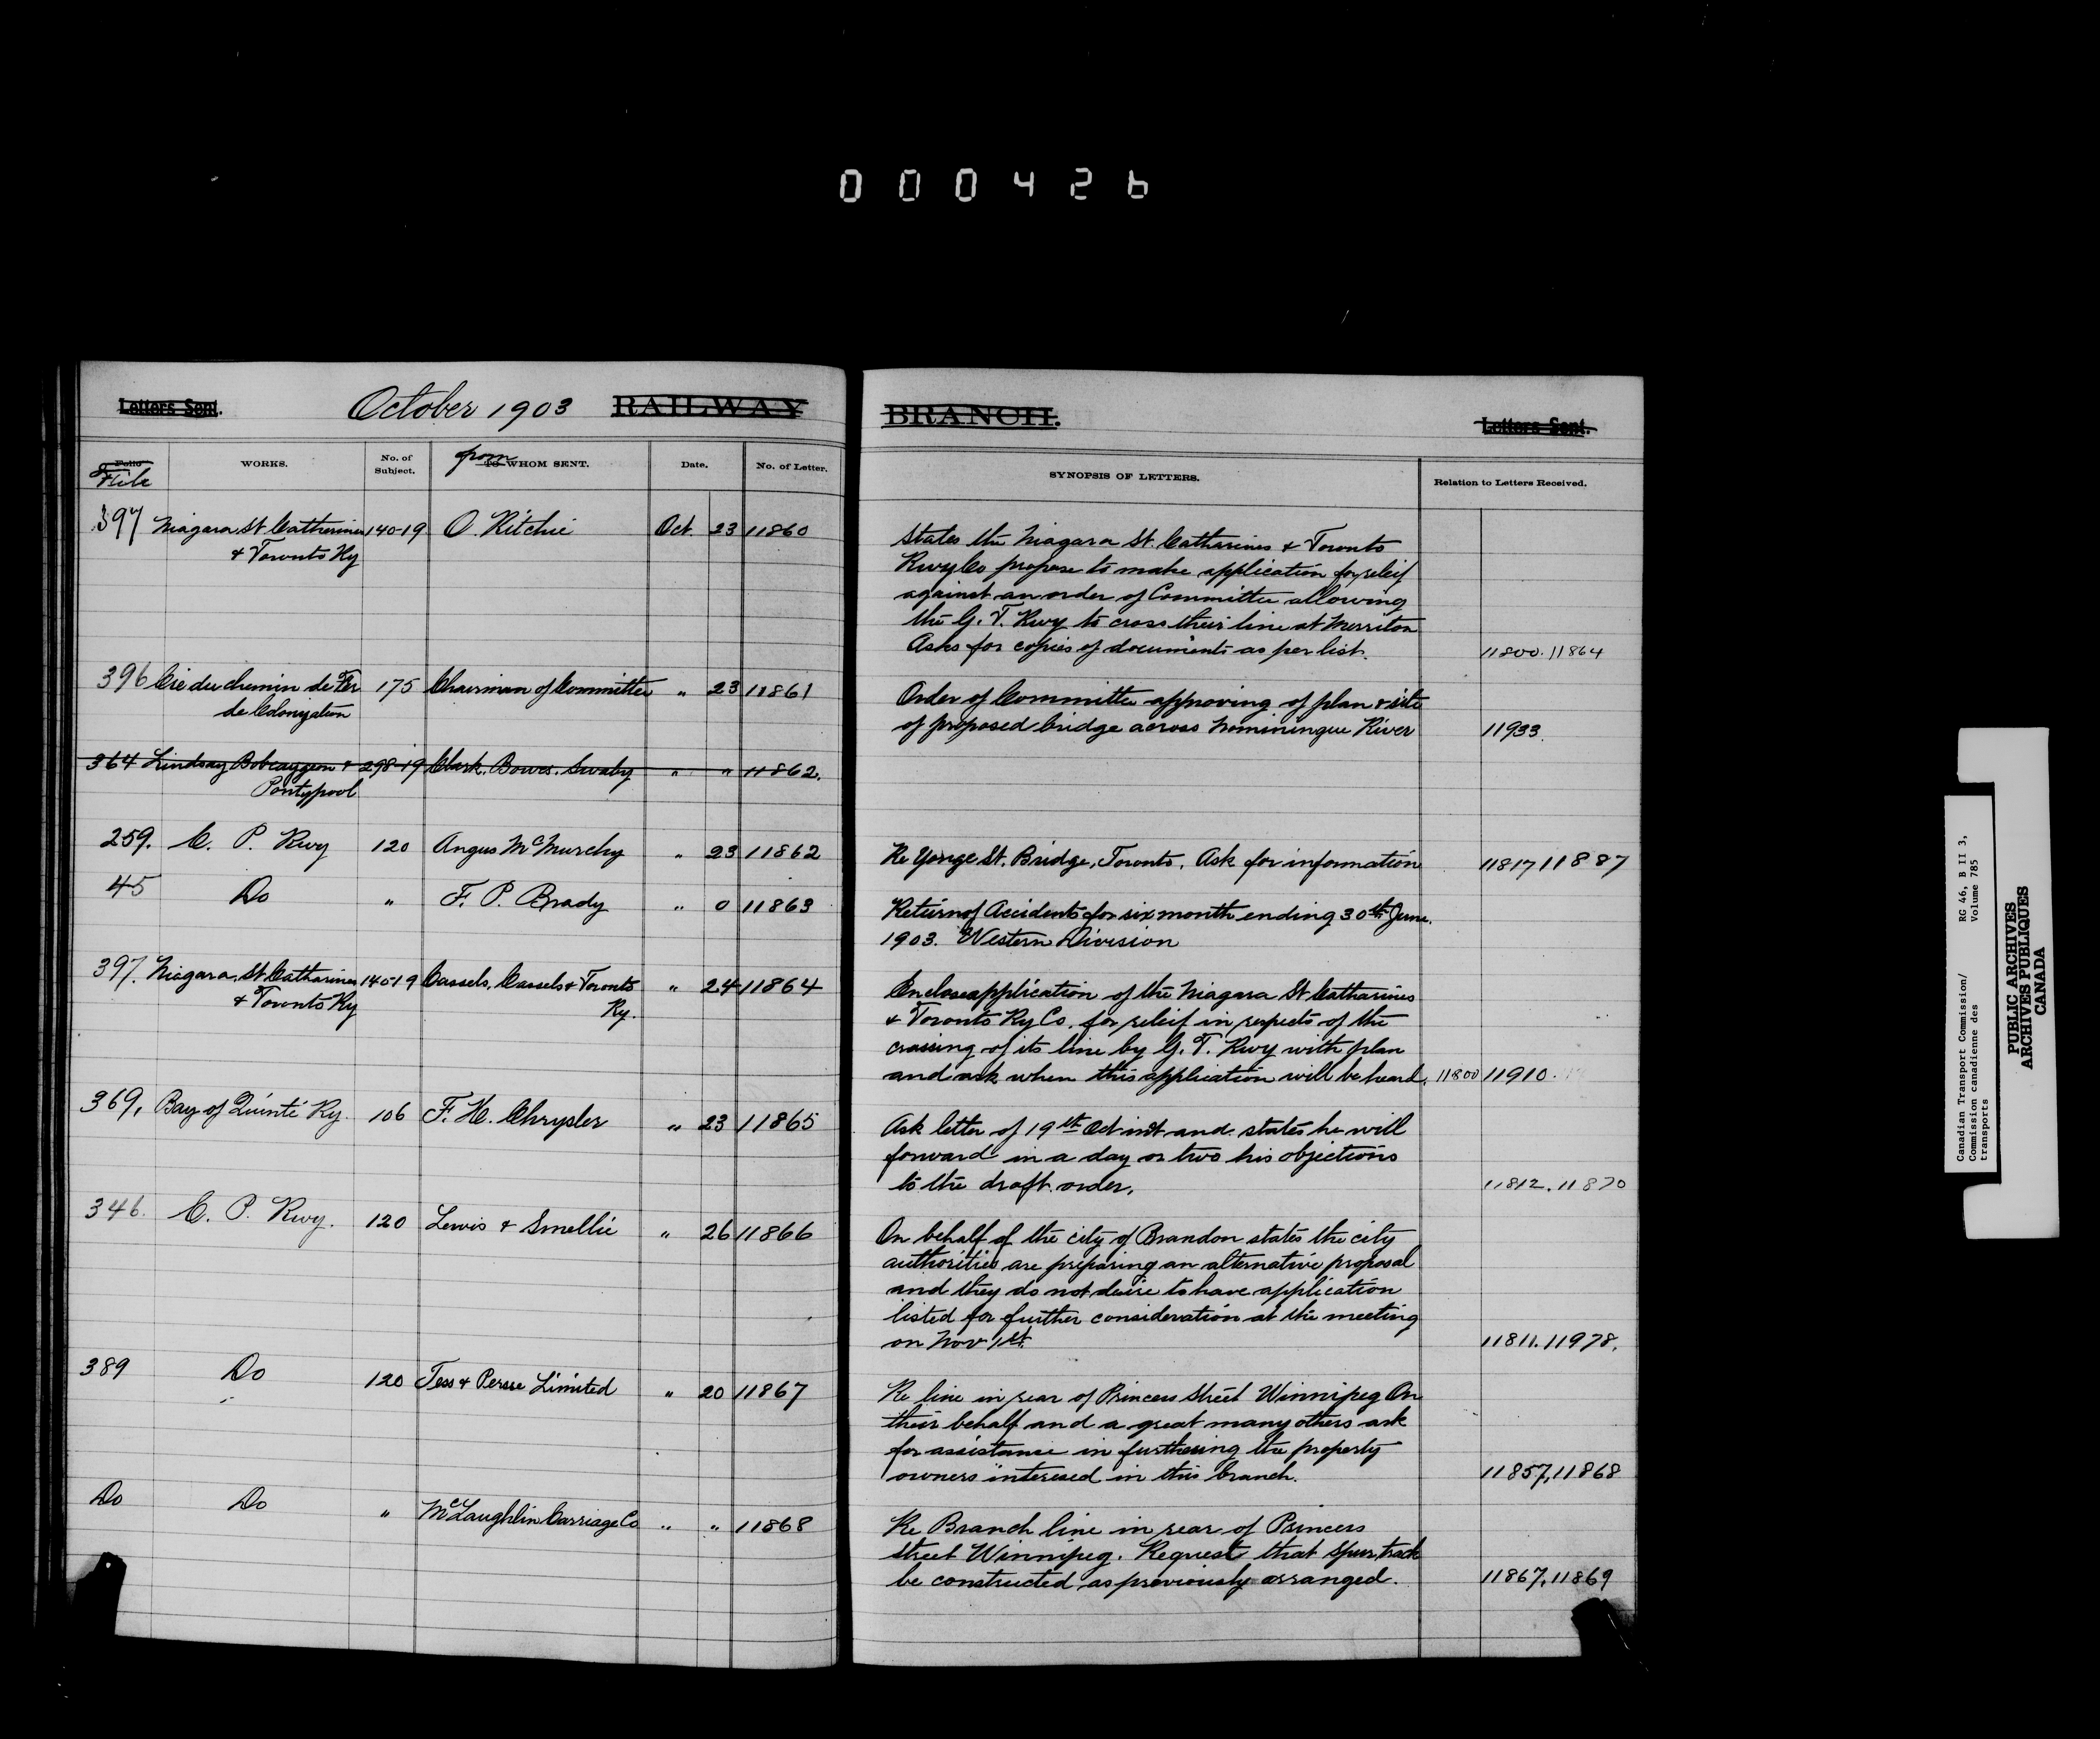 000426
Letters Sent. October 1903 RAILWAY
Folio File WORKS. No. of Subject. TO from WHOM SENT. Date. No. of Letter.
397 Niagara St Catherines 140-19 O. Ritchie Oct. 23 11860
& Toronto Ry
396 Cie du chemin de Fer 175 Chairman of Committee " 23 11861
de Colonization
364 Lindsay Bobcaygeon & 298-19 Clark. Bowes. Swaby " " 11862.
Pontypool
259. C. P. Rwy 120 Angus McMurchy " 23 11862
45 Do " F. P. Brady " 0 11863
397. Niagara. St. Catharines 140-19 Cassels, Cassels & Toronto " 24 11864
& Toronto Ry Ry.
369, Bay of Quinté Ry. 106 F. H. Chrysler " 23 11865
346. C. P. Rwy. 120 Lewis & Smellie " 26 11866
389 Do 120 Tess & Persse Limited " 20 11867
Do Do " McLaughlin Carriage Co " " 11868
BRANCH. Letters Sent.
SYNOPSIS OF LETTERS. Relation to Letters Received.
States the Niagara St. Catharines & Toronto
Rwy Co propose to make application for releif
against an order of Committee allowing
the G. T. Rwy to cross their line at Merriton
Asks for copies of documents as per list. 11800. 11864
Order of Committee approving of plan & site
of proposed bridge across Nominingue River 11933.
Re Yonge St. Bridge, Toronto. Ask for information 11817 11887
Return of Accidents for six month ending 30th June.
1903. Western Division
Enclose application of the Niagara St Catharines
& Toronto Ry Co. for releif in respects of the
crossing of its line by G. T. Rwy with plan
and ask when this application will be heard. 11800 11910.
Ask letter of 19th Oct inst and states he will
forward in a day or two his objections
to the draft order. 11812. 11870
On behalf of the city of Brandon states the city
authorities are preparing an alternative proposal
and they do not desire to have application
listed for further consideration at the meeting
on Nov 1st. 11811. 11978.
Re line in rear of Princess Street Winnipeg On
their behalf and a great many others ask
for assistance in furthering the property
owners interesed in this branch. 11857, 11868
Re Branch line in rear of Princess
Street Winnipeg. Request that spur track
be constructed as previously arranged. 11867, 11869
Canadian Transport Commission/ RG 46, B II 3,
Commission canadienne des Volume 785
transports
PUBLIC ARCHIVES
ARCHIVES PUBLIQUES
CANADA